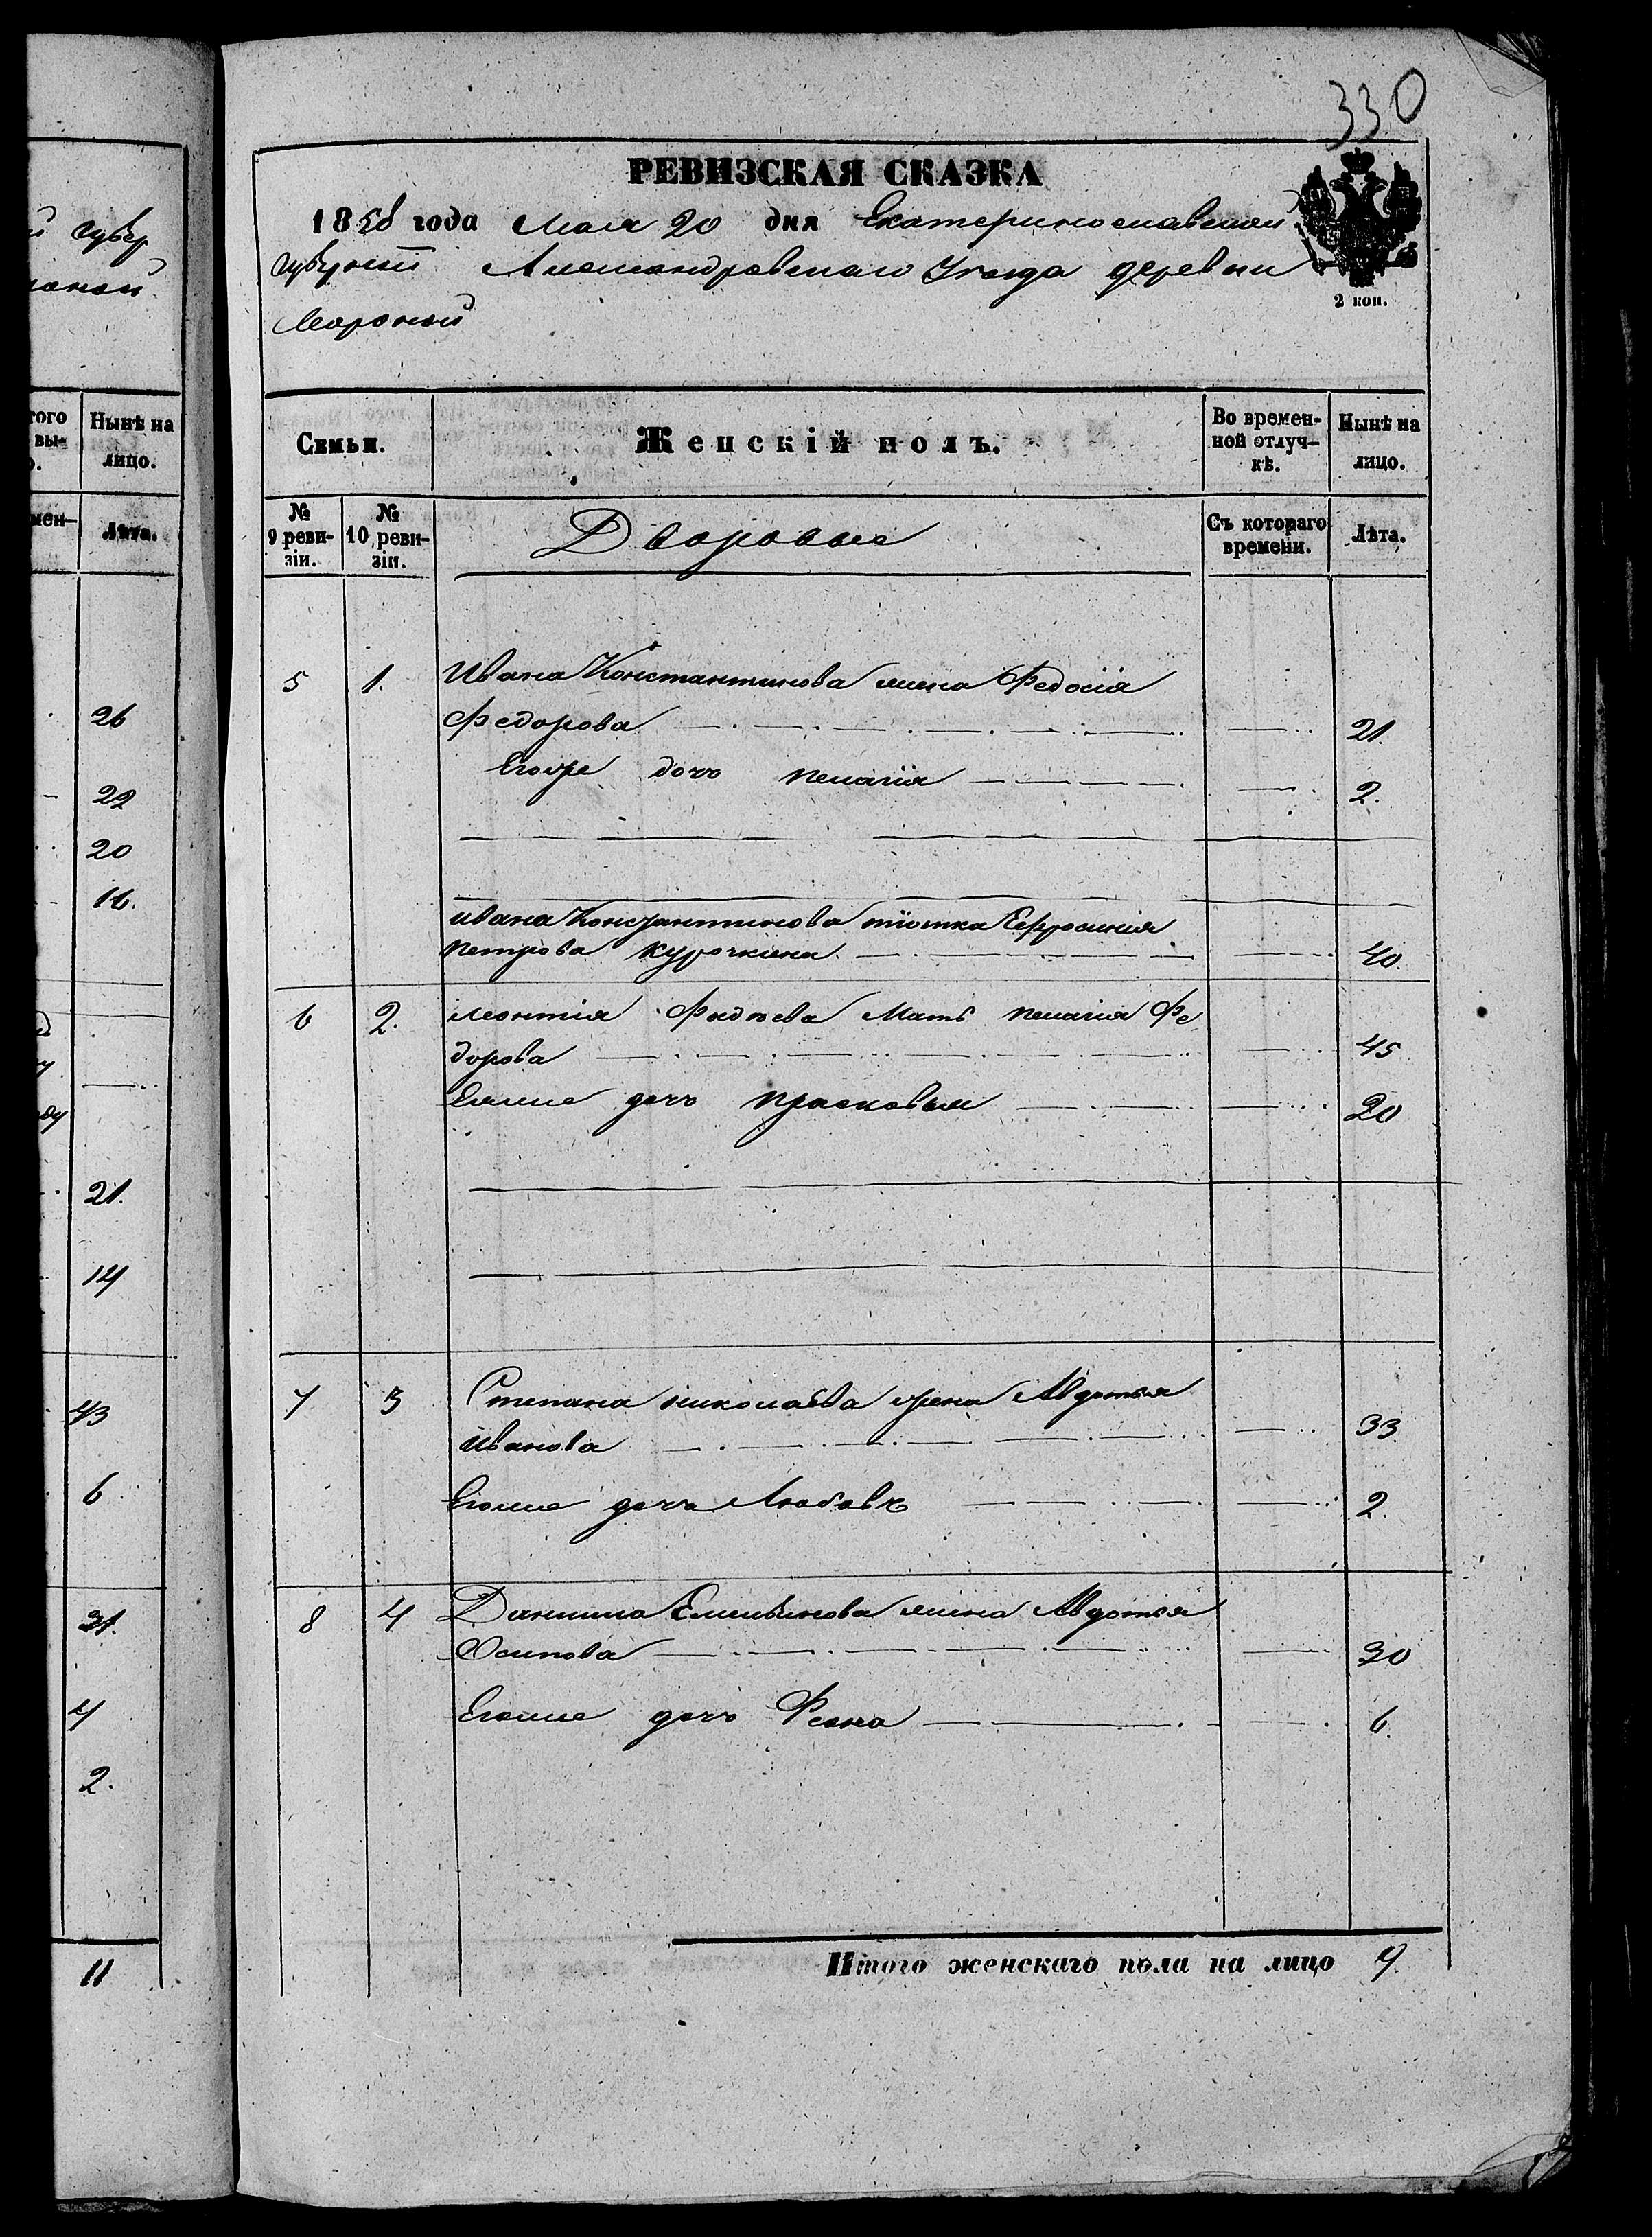 330
РЕВИЗСКАЯ СКАЗКА
1858 года Мая 20 дня Екатеринославской
Губерніи Александровскаго Уезда деревни
2 коп.
губер
того
вы-
Нынѣ на
лицо.
мен-
Лѣта.
26
22
20
16.
21.
14
43
6
31.
4
2.
11
Семьи.
Женскій полъ.
Во времен-
ной отлуч-
кѣ.
Нынѣ на
лицо.
№
9 реви-
зіи.
№
10 реви-
зіи.
Дворовые
Съ котораго
времени.
Лѣта.
5 1. Ивана Константинова жена Федосія
Федорова 21.
Егоже дочь пелагія 2.
ивана Константинова тіотка Ефросинія
петрова курочкина 40.
6 2. леонтія Фадѣева Мать пелагія Фе
дорова 45
Еяже дочь прасковья 20
7 3 Степана николаева жена Авдотья
Иванова 33
Егоже дочь Любовь 2.
8 4 Данила Емельянова жена Авдотья
Осипова 30
Егоже дочь Фекла 6.
Итого женскаго пола на лицо 9.